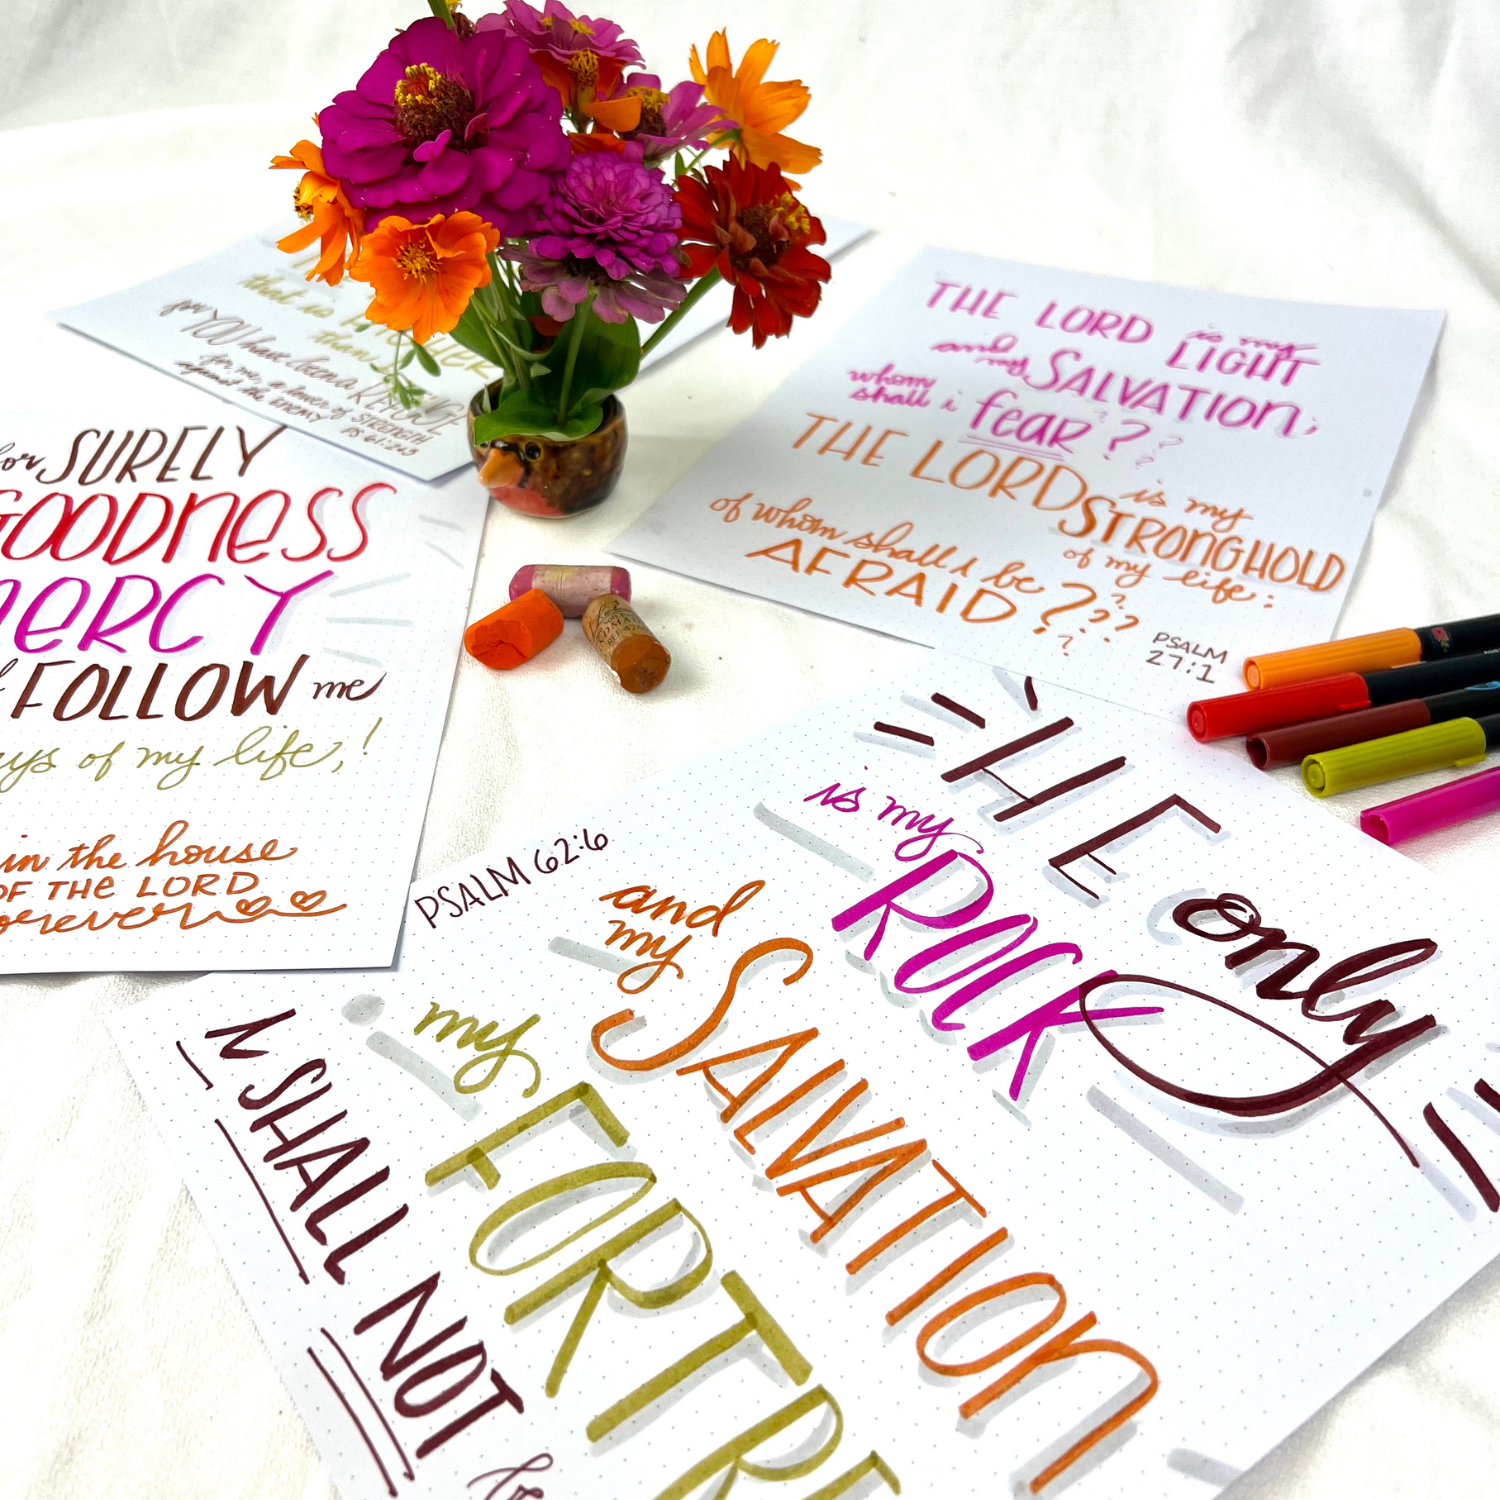 that is HIGHER
than I
for YOU have been a REFUGE
for me, a tower of STRENGTH
against the ENEMY
PS 61:2+3
for SURELY
GOODNESS
MERCY
FOLLOW me
days of my life,!
in the house
OF THE LORD
forever
THE LORD is my
LIGHT
and my
SALVATION;
whom
shall i fear???
THE LORD is my
STRONGHOLD
of my life:
of whom shall i be
AFRAID????
PSALM
27:1
HE only
is my
ROCK
and
my
SALVATION
PSALM 62:6
my
FORTRE
I SHALL NOT
be